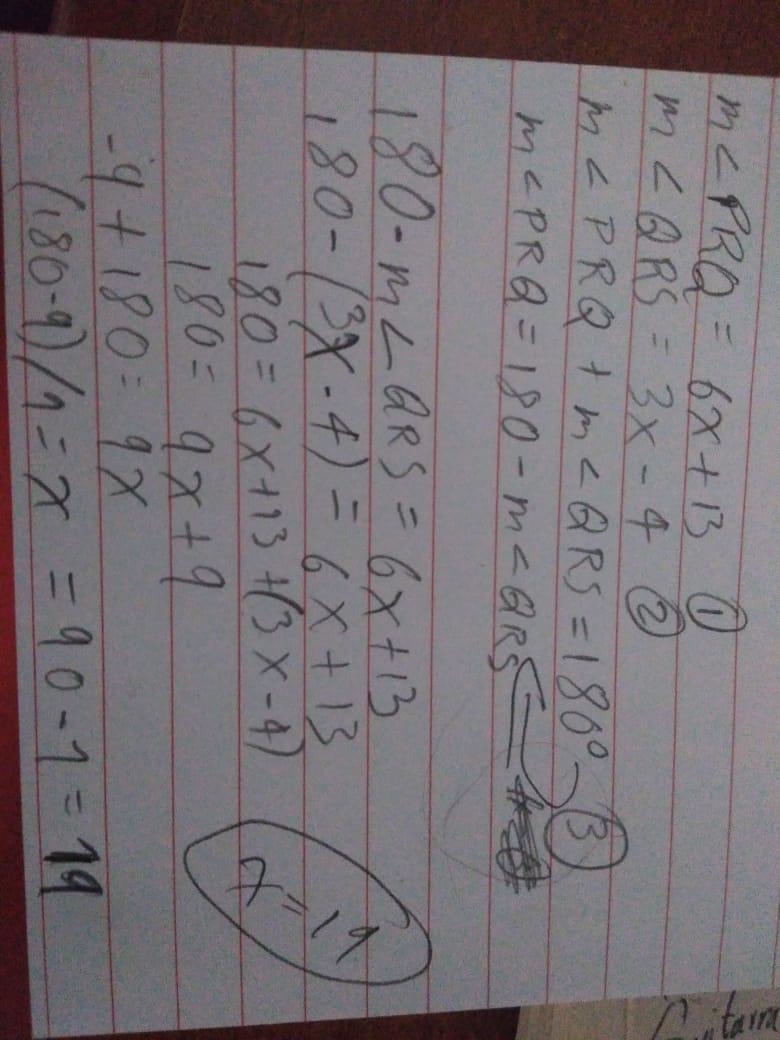 m<PRQ = 6x+13 ①
m<QRS = 3x-4 ②
m<PRQ + m<QRS = 180° - ③
m<PRQ = 180 - m<QRS
180 - m<QRS = 6x+13
180-(3x-4) = 6x+13
180 = 6x+13+(3x-4)
180 = 9x+9
-9+180 = 9x
(180-9)/9 = x = 90-1 = 19
x=19